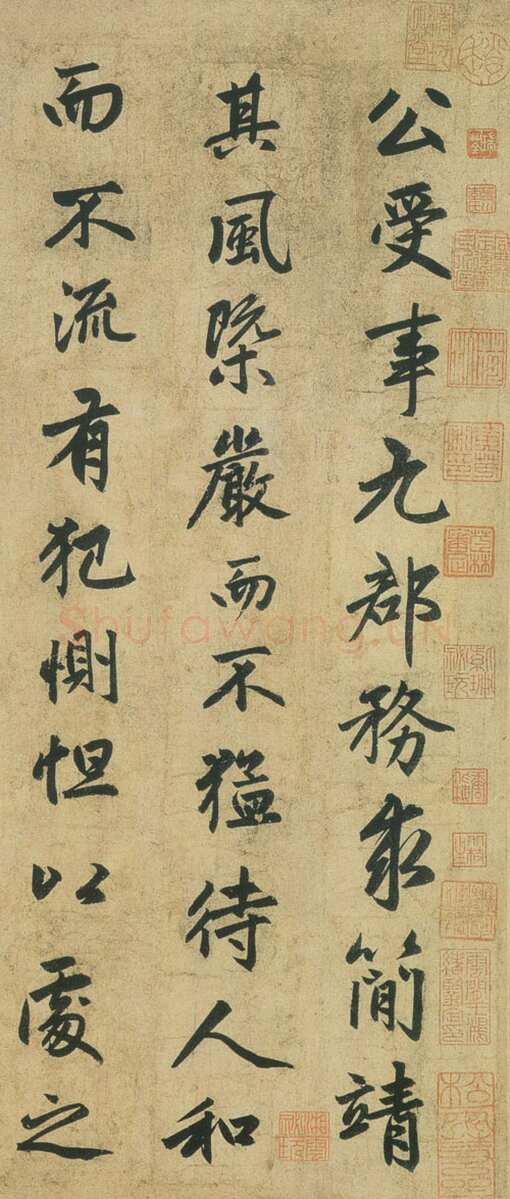 公受事九郡務求簡靖
其風槩嚴而不猛待人和
而不流有犯惻怛以處之
Shufawang.CN